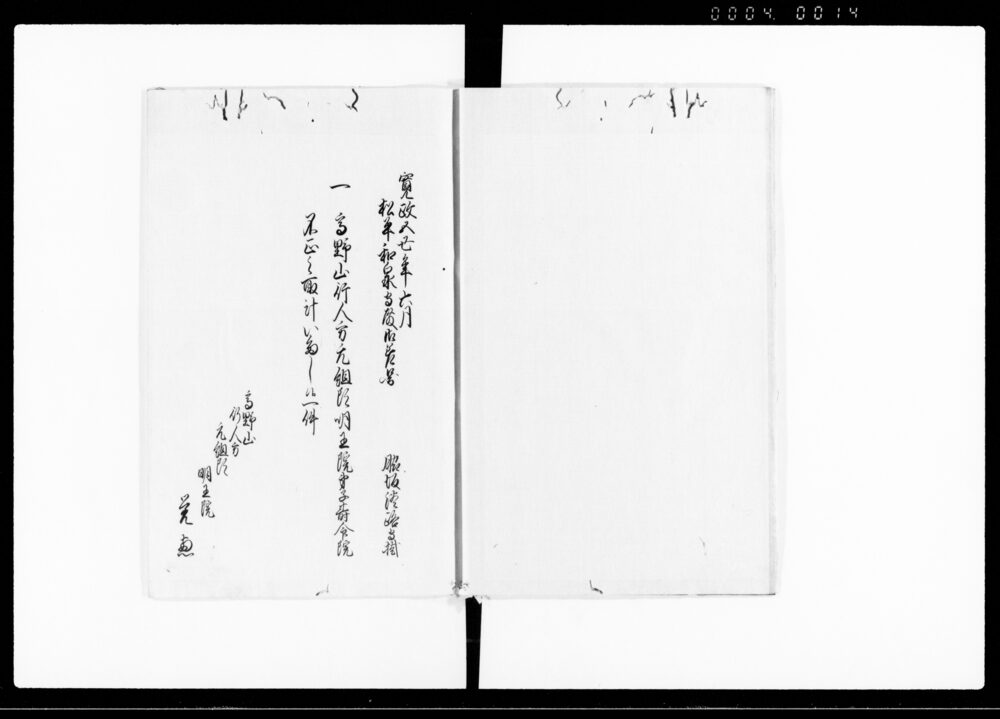 0004 0014
寛政五丑年六月
松平和泉守殿御差図
脇坂淡路守掛
一 高野山行人方元組頭明王院弟子寿命院
不正之取計いたし候一件
高野山
行人方
元組頭
明王院
覚恵